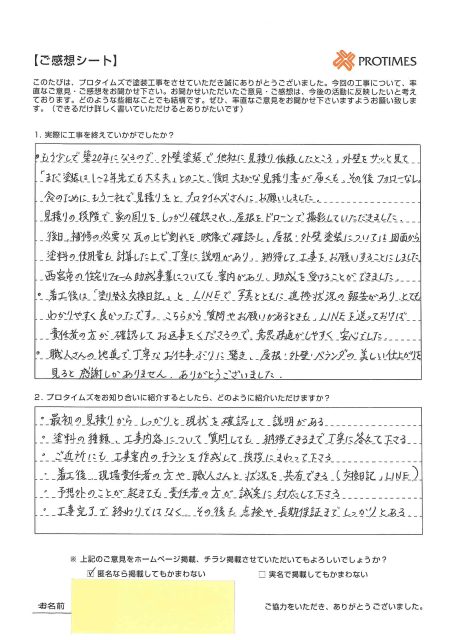 【ご感想シート】
PROTIMES
このたびは、プロタイムズで塗装工事をさせていただき誠にありがとうございました。今回の工事について、率
直なご意見・ご感想をお聞かせ下さい。お聞かせいただいたご意見・ご感想は、今後の活動に反映したいと考え
ております。どのような些細なことでも結構です。ぜひ、率直なご意見をお聞かせ下さいますようお願い致しま
す。（できるだけ詳しく書いていただけるとありがたいです）
1. 実際に工事を終えていかがでしたか？
・もう少しで築20年になるので、外壁塗装で他社に見積り依頼したところ、外壁をサッと見て
「まだ塗装は1〜2年先でも大丈夫」とのこと、後日大まかな見積り書が届くも、その後フォローなし。
念のためにもう一社で見積りをとプロタイムズさんにお願いしました。
見積りの段階で家の周りをしっかり確認され、屋根をドローンで撮影していただきました。
後日、補修の必要な瓦のヒビ割れを映像で確認し、屋根・外壁塗装については図面から
塗料の使用量も計算した上で丁寧に説明があり、納得して工事をお願いすることにしました
西宮市の住宅リフォーム助成事業についても案内があり、助成を受けることができました。
・着工後は「塗り替え交換日記」とLINEで写真とともに進捗状況の報告がありとても
わかりやすく良かったです。こちらから質問やお願いがあるときも、LINEを送っておけば
責任者の方が確認してお返事をくださるので、意思疎通がしやすく安心でした。
・職人さんの地道で丁寧なお仕事ぶりに驚き、屋根・外壁・ベランダの美しい仕上がりを
見ると感謝しかありません。ありがとうございました。
2. プロタイムズをお知り合いに紹介するとしたら、どのように紹介いただけますか？
・最初の見積りからしっかりと現状を確認して説明がある
・塗料の種類、工事内容について質問しても納得できるまで丁寧に答えて下さる
・ご近所にも工事案内のチラシを作成して挨拶にまわって下さる
・着工後、現場責任者の方や職人さんと状況を共有できる（交換日記、LINE）
・予想外のことが起きても責任者の方が誠実に対応して下さる
・工事完了で終わりではなく、その後も点検や長期保証までしっかりとある
※ 上記のご意見をホームページ掲載、チラシ掲載させていただいてもよろしいでしょうか？
☑ 匿名なら掲載してもかまわない　□ 実名で掲載してもかまわない
お名前
ご協力をいただき、ありがとうございました。